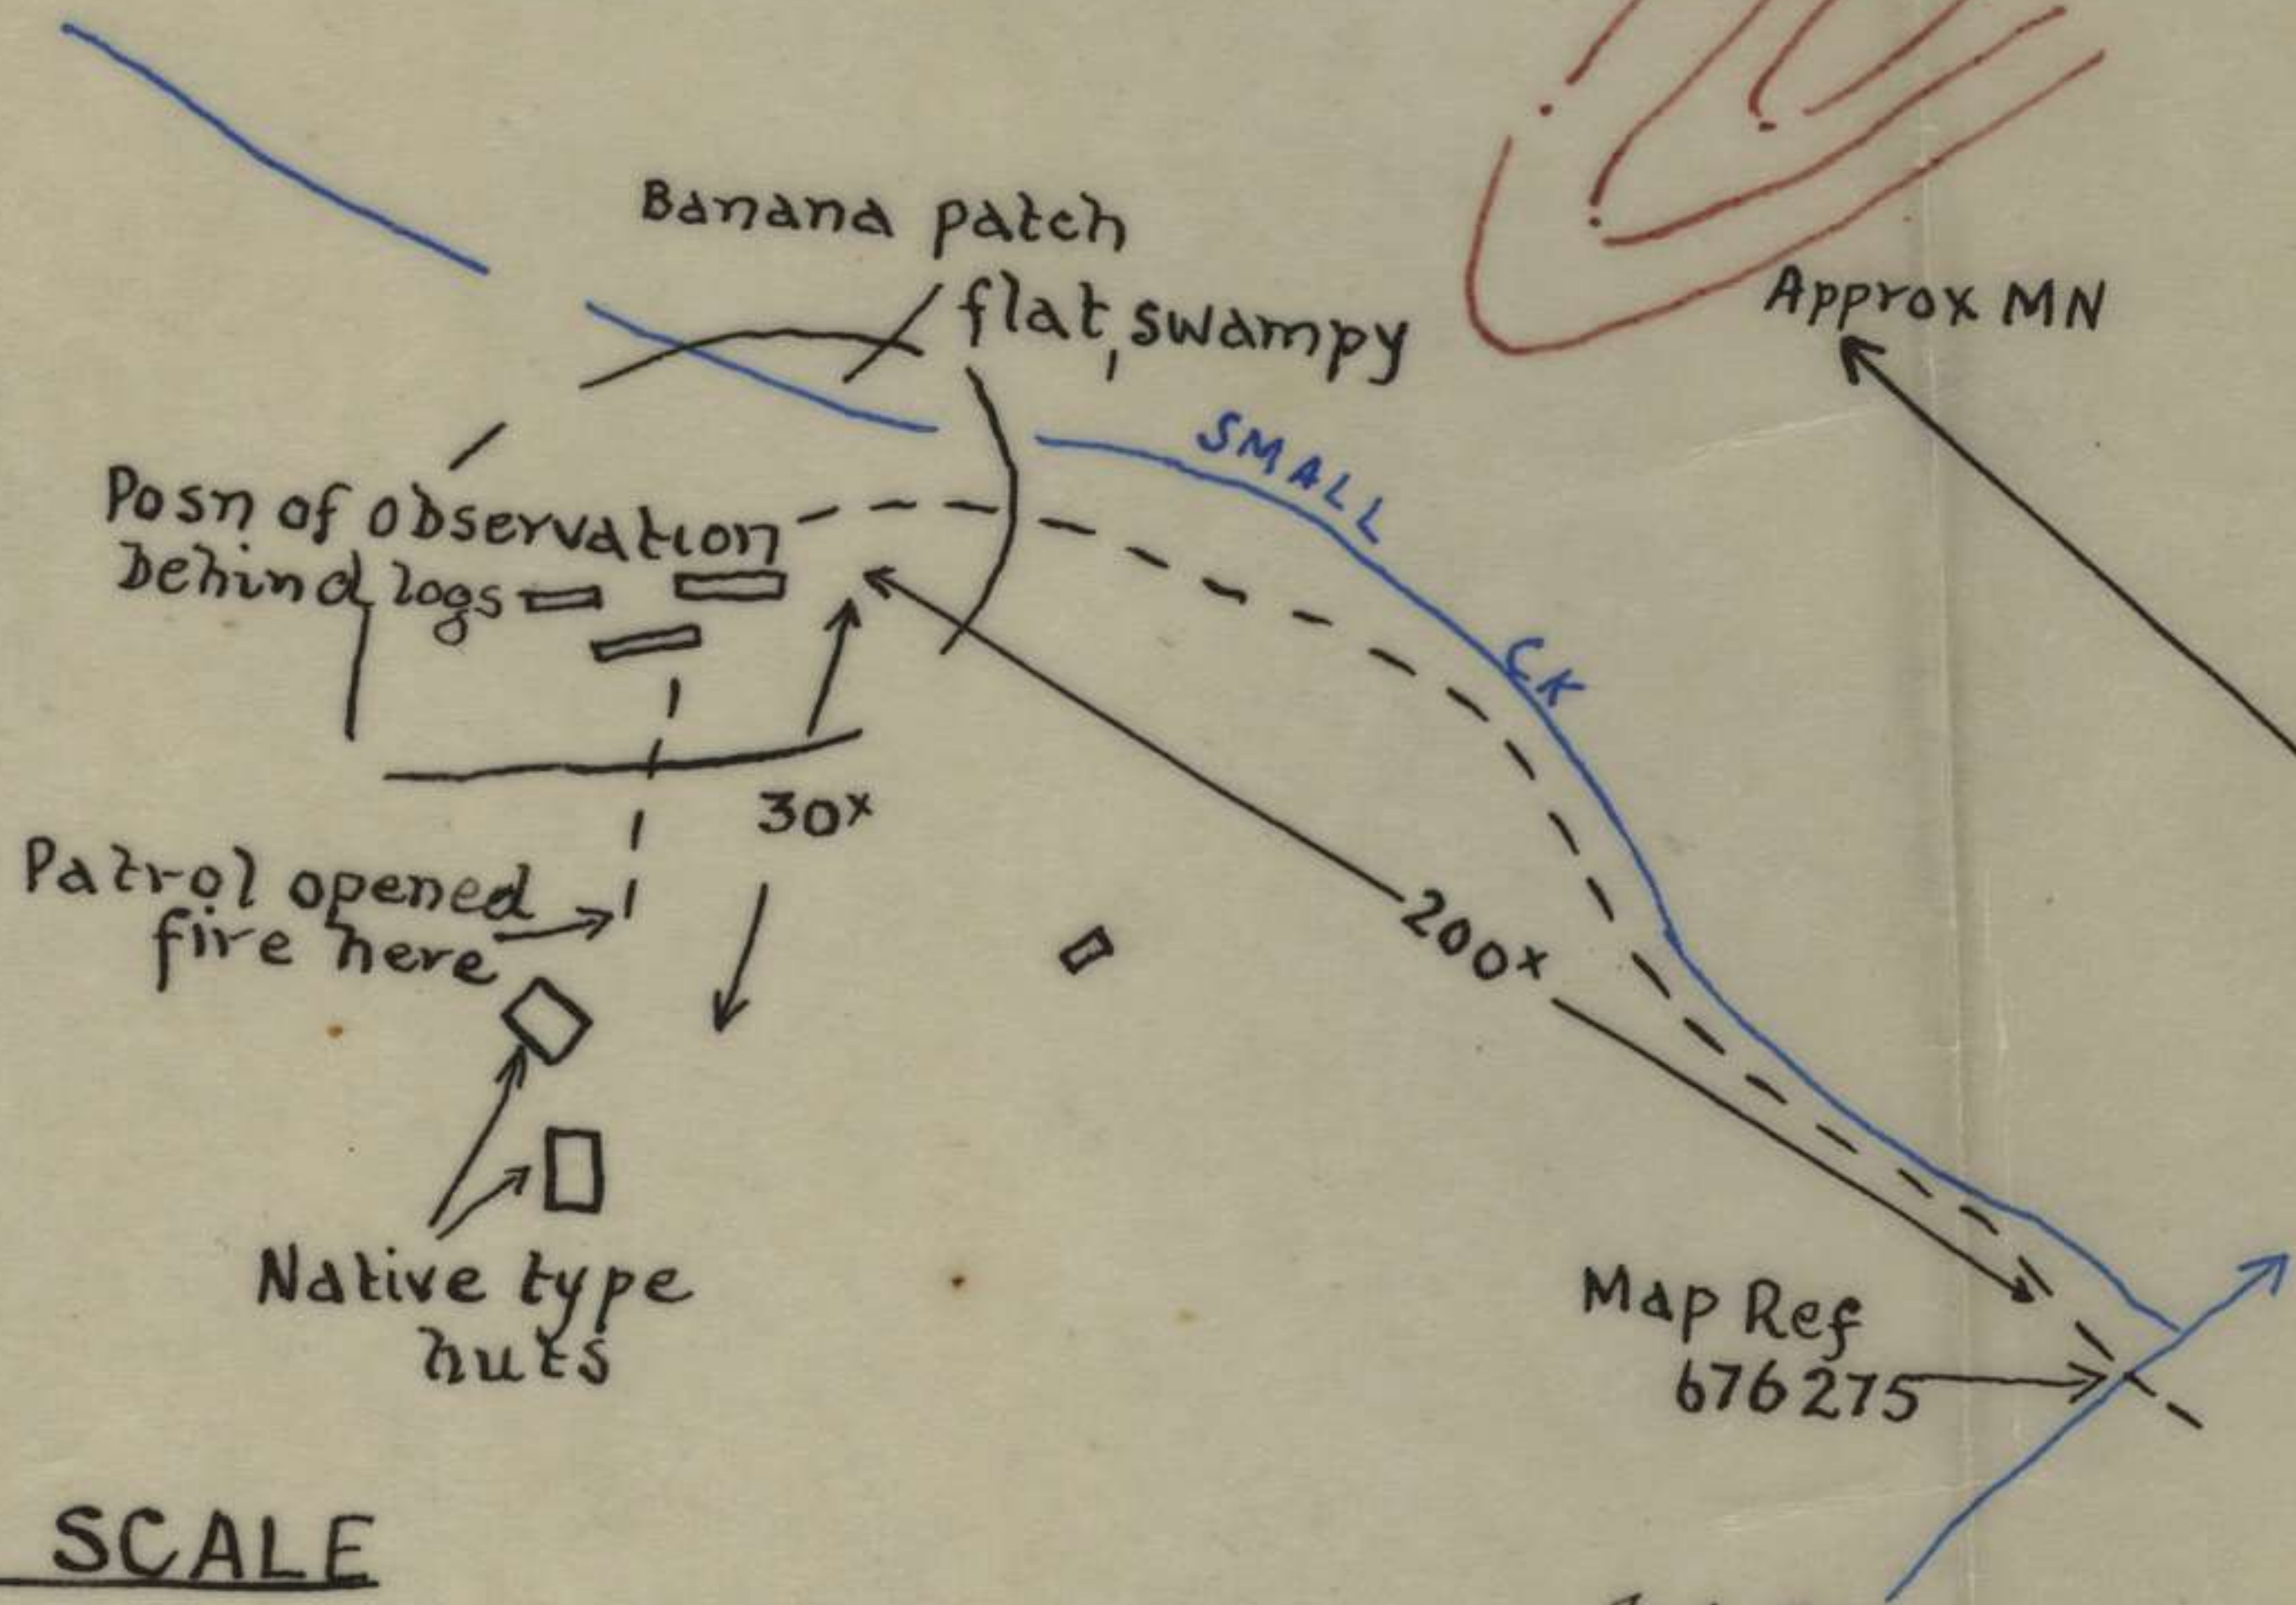 Banana patch
flat, swampy
Approx MN
SMALL
CK
Posn of observation
behind logs
30x
Patrol opened
fire here
200x
Native type
huts
Map Ref
676275
SCALE